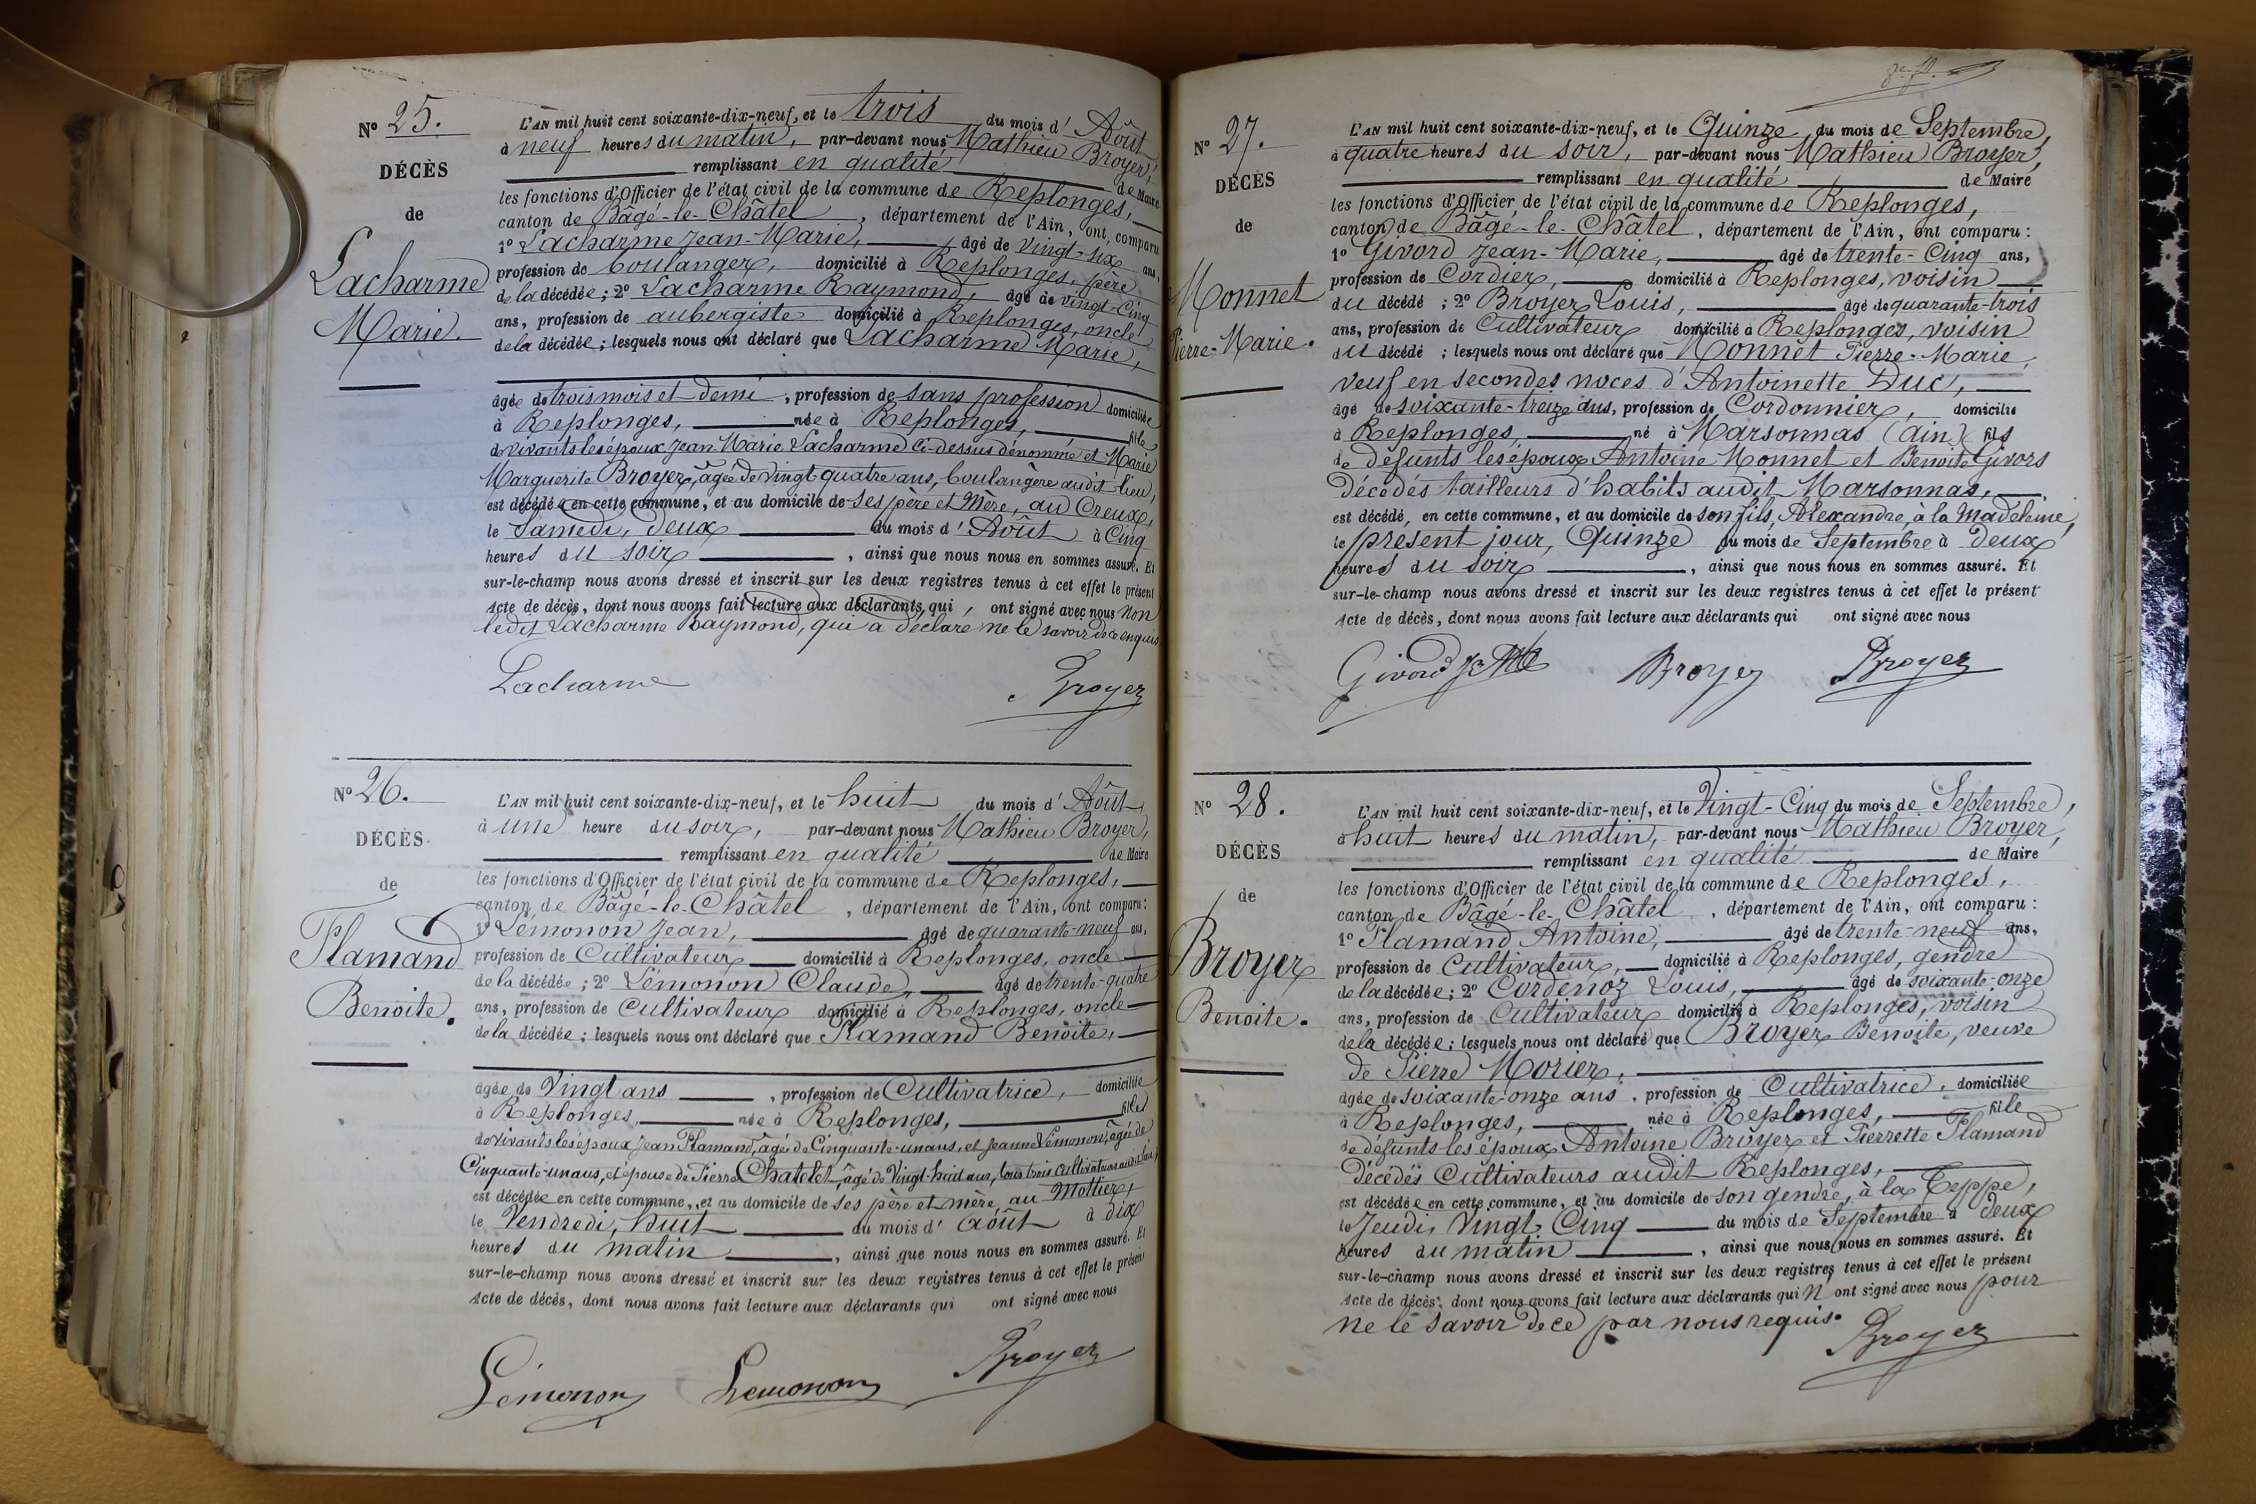 N° 25.
DÉCÈS
de
Lacharme
Marie.
L'AN mil huit cent soixante-dix-neuf, et le trois du mois d' Août
à neuf heures du matin, par-devant nous Mathieu Broyer,
remplissant en qualité de Maire
les fonctions d'Officier de l'état civil de la commune de Replonges,
canton de Bâgé-le-Châtel, département de l'Ain, ont comparu
1° Lacharme Jean-Marie, âgé de vingt-six ans,
profession de boulanger, domicilié à Replonges, père
de la décédée; 2° Lacharme Raymond, âgé de vingt-cinq
ans, profession de aubergiste domicilié à Replonges, oncle
de la décédée; lesquels nous ont déclaré que Lacharme Marie,
âgée de trois mois et demi, profession de sans profession domiciliée
à Replonges, née à Replonges, fille
de vivants les époux Jean Marie Lacharme ci-dessus dénommé et Marie
Marguerite Broyer, âgée de vingt quatre ans, boulangère audit lieu,
est décédée en cette commune, et au domicile de ses père et mère, au Creux,
le Samedi, deux du mois d' Août à cinq
heures du soir, ainsi que nous nous en sommes assuré. Et
sur-le-champ nous avons dressé et inscrit sur les deux registres tenus à cet effet le présent
Acte de décès, dont nous avons fait lecture aux déclarants, qui, ont signé avec nous non
ledit Lacharme Raymond, qui a déclaré ne le savoir de ce enquis
Lacharme Broyer
N° 26.
DÉCÈS
de
Flamand
Benoite.
L'AN mil huit cent soixante-dix-neuf, et le huit du mois d' Août,
à une heure du soir, par-devant nous Mathieu Broyer,
remplissant en qualité de Maire
les fonctions d'Officier de l'état civil de la commune de Replonges,
canton de Bâgé-le-Châtel, département de l'Ain, ont comparu:
1° Lémonon Jean, âgé de quarante-neuf ans,
profession de Cultivateur domicilié à Replonges, oncle
de la décédée; 2° Lémonon Claude, âgé de trente-quatre
ans, profession de Cultivateur domicilié à Replonges, oncle
de la décédée; lesquels nous ont déclaré que Flamand Benoite,
âgée de Vingt ans, profession de Cultivatrice, domiciliée
à Replonges, née à Replonges, fille
de vivants les époux Jean Flamand, âgé de Cinquante-un ans, et Jeanne Lémonon, âgée de
Cinquante-un ans, et épouse de Pierre Chatelet, âgé de Vingt-huit ans, tous trois cultivateurs audit lieu,
est décédée en cette commune, et au domicile de ses père et mère, au Mottier,
le Vendredi, huit du mois d' Août à dix
heures du matin, ainsi que nous nous en sommes assuré. Et
sur-le-champ nous avons dressé et inscrit sur les deux registres tenus à cet effet le présent
Acte de décès, dont nous avons fait lecture aux déclarants qui ont signé avec nous
Lémonon Lemonon Broyer
N° 27.
DÉCÈS
de
Monnet
Pierre-Marie.
L'AN mil huit cent soixante-dix-neuf, et le Quinze du mois de Septembre,
à quatre heures du soir, par-devant nous Mathieu Broyer,
remplissant en qualité de Maire
les fonctions d'Officier de l'état civil de la commune de Replonges,
canton de Bâgé-le-Châtel, département de l'Ain, ont comparu:
1° Givord Jean-Marie, âgé de trente-Cinq ans,
profession de Cordier, domicilié à Replonges, voisin
du décédé; 2° Broyer Louis, âgé de quarante-trois
ans, profession de Cultivateur domicilié à Replonges, voisin
du décédé; lesquels nous ont déclaré que Monnet Pierre-Marie,
veuf en secondes noces d'Antoinette Duc,
âgé de soixante-treize ans, profession de Cordonnier, domicilié
à Replonges né à Marsonnas (Ain) fils
de défunts les époux Antoine Monnet et Benoite Givors
Décédés tailleurs d'habits audit Marsonnas,
est décédé, en cette commune, et au domicile de son fils, Alexandre, à la Madeleine,
le présent jour, Quinze du mois de Septembre à deux
heures du soir, ainsi que nous nous en sommes assuré. Et
sur-le-champ nous avons dressé et inscrit sur les deux registres tenus à cet effet le présent
Acte de décès, dont nous avons fait lecture aux déclarants qui ont signé avec nous
Givord Broyer Broyer
N° 28.
DÉCÈS
de
Broyer
Benoite.
L'AN mil huit cent soixante-dix-neuf, et le Vingt-Cinq du mois de Septembre,
à huit heures du matin, par-devant nous Mathieu Broyer,
remplissant en qualité de Maire
les fonctions d'Officier de l'état civil de la commune de Replonges,
canton de Bâgé-le-Châtel, département de l'Ain, ont comparu:
1° Flamand Antoine, âgé de trente-neuf ans,
profession de Cultivateur, domicilié à Replonges, gendre
de la décédée; 2° Cordenoz Louis, âgé de soixante-onze
ans, profession de Cultivateur domicilié à Replonges, voisin
de la décédée; lesquels nous ont déclaré que Broyer Benoite, veuve
de Pierre Morier,
âgée de soixante-onze ans, profession de Cultivatrice, domiciliée
à Replonges, née à Replonges, fille
de défunts les époux Antoine Broyer et Pierrette Flamand
Décédés Cultivateurs audit Replonges,
est décédée en cette commune, et au domicile de son gendre, à la Teppe,
le Jeudi, Vingt-Cinq du mois de Septembre à deux
heures du matin, ainsi que nous nous en sommes assuré. Et
sur-le-champ nous avons dressé et inscrit sur les deux registres tenus à cet effet le présent
Acte de décès, dont nous avons fait lecture aux déclarants qui n'ont signé avec nous pour
ne le savoir de ce par nous requis.
Broyer